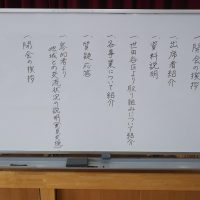 一 開会の挨拶
一 出席者紹介
一 資料説明
一 世田谷区より取り組みについて紹介
一 各事業について紹介
一 質疑応答
一 参加者より
地域との交流状況の説明
一 閉会の挨拶